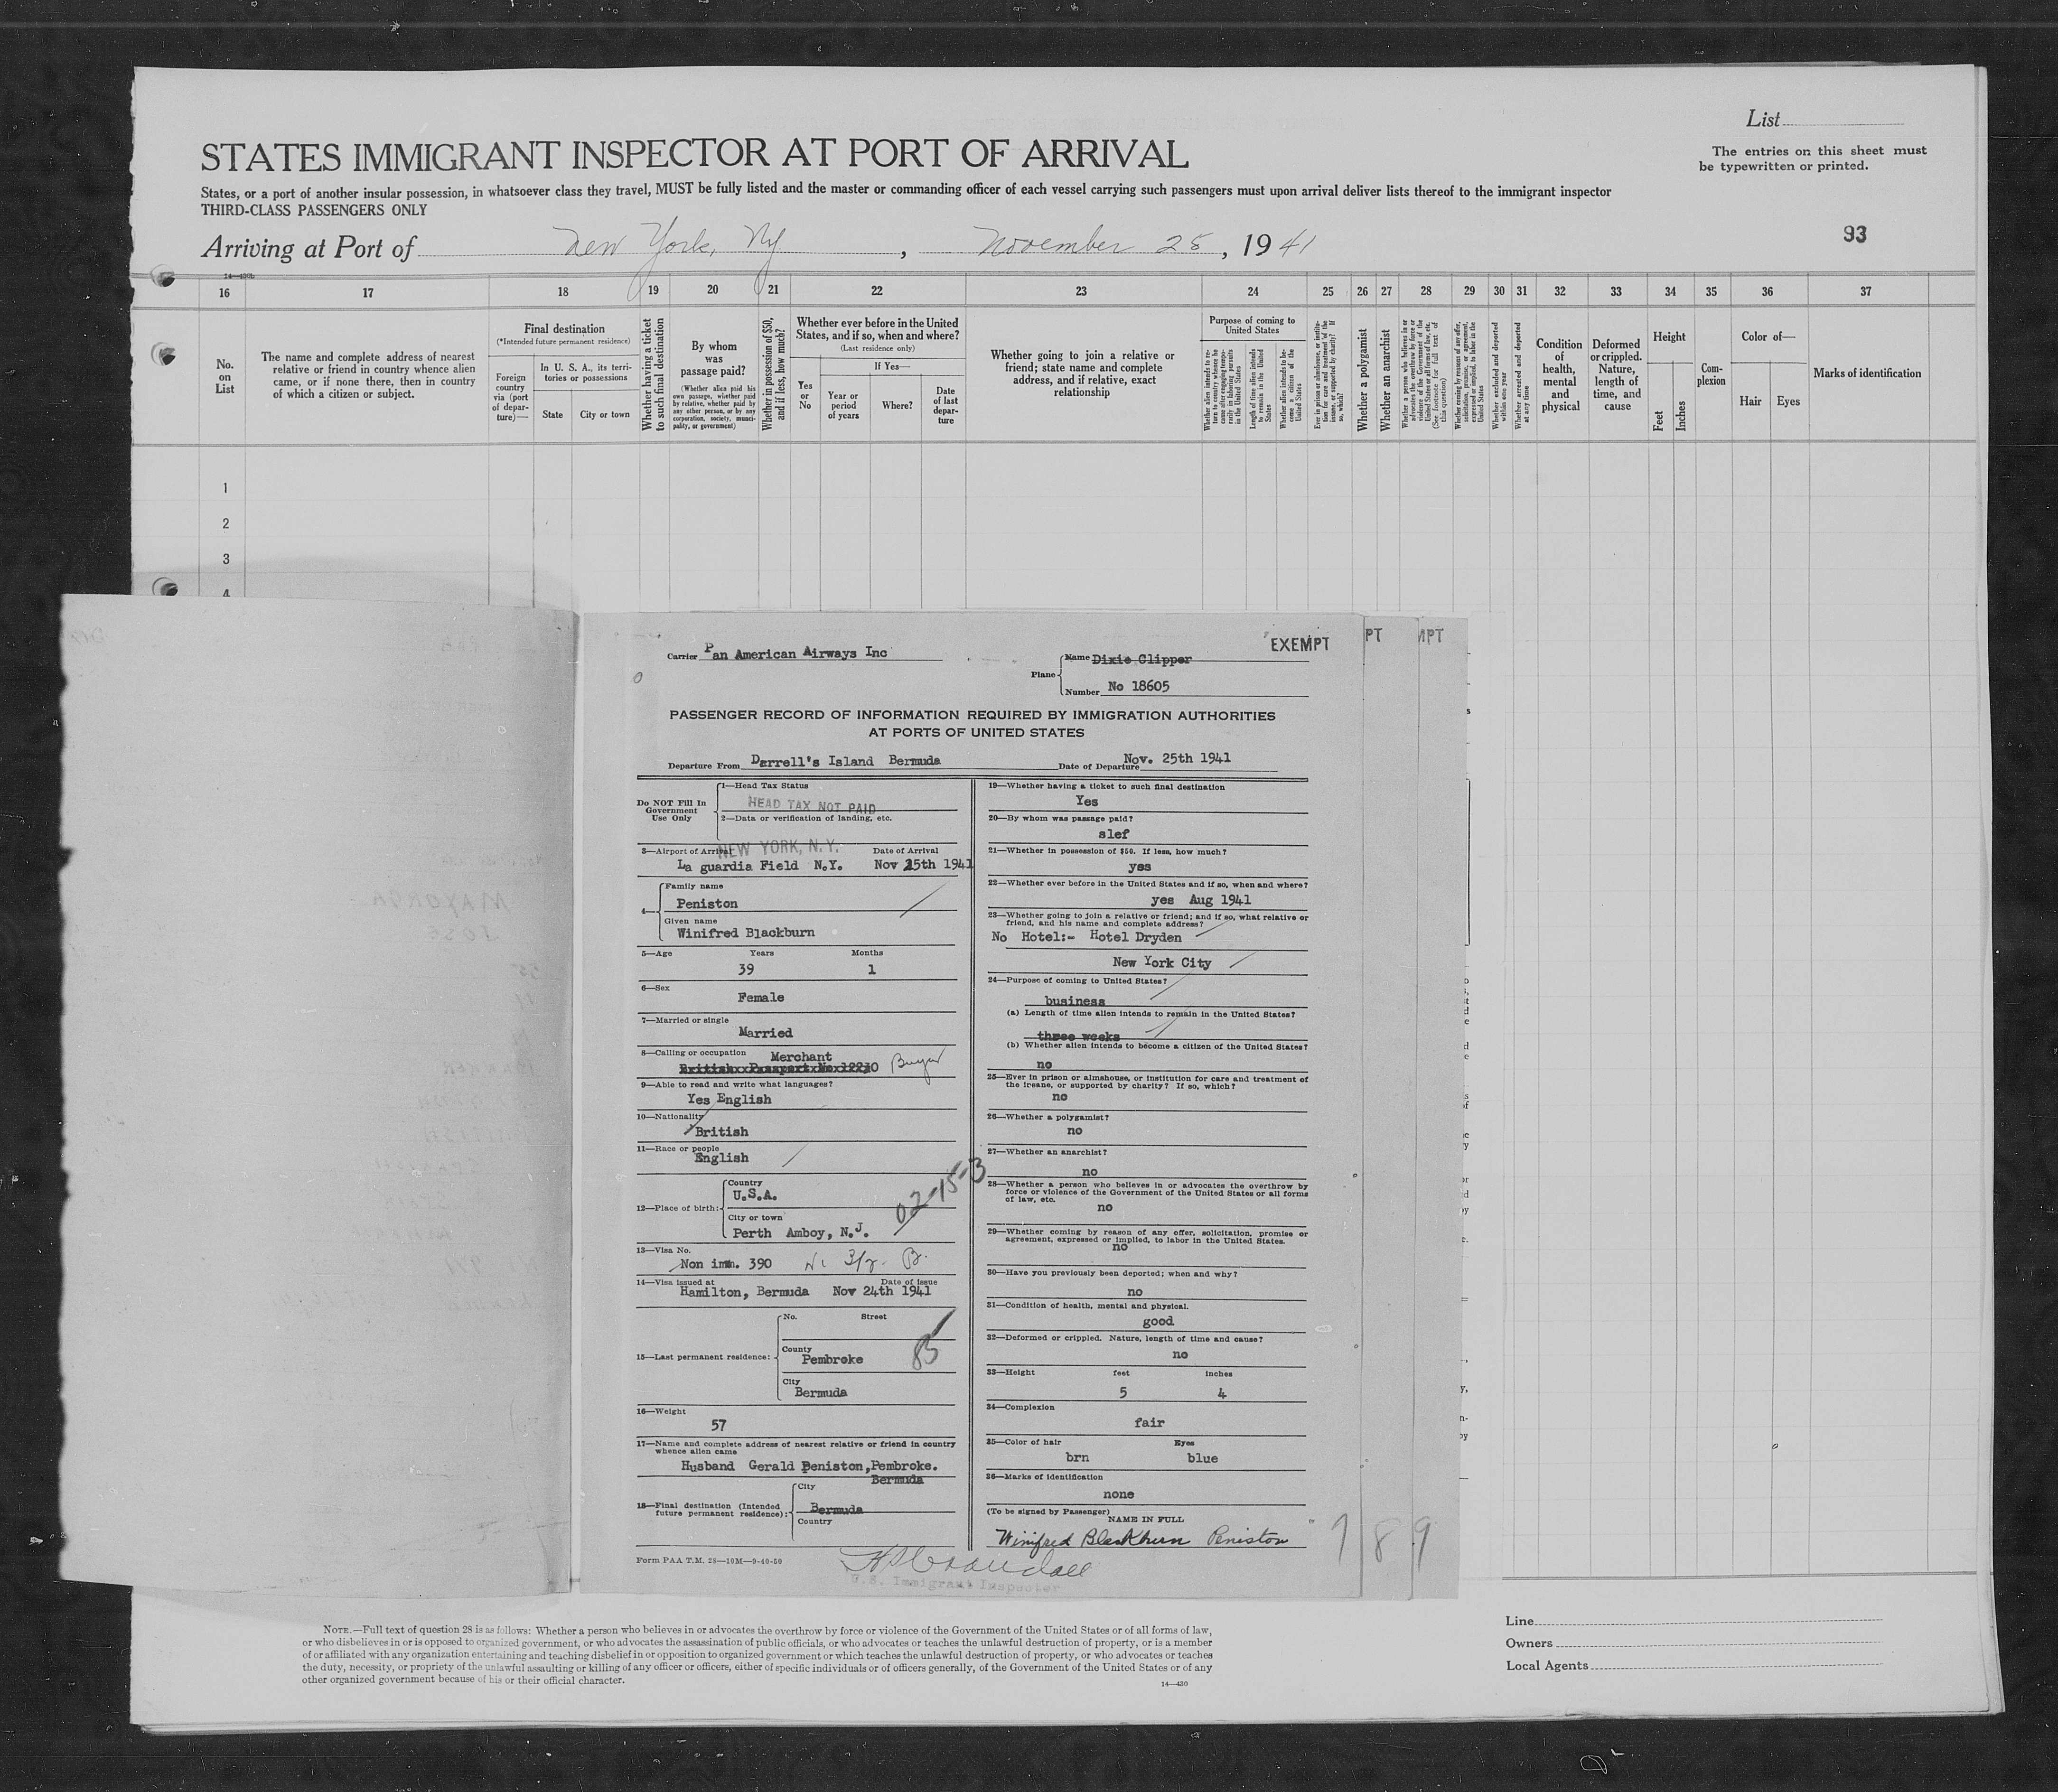 List
STATES IMMIGRANT INSPECTOR AT PORT OF ARRIVAL
The entries on this sheet must
be typewritten or printed.
States, or a port of another insular possession, in whatsoever class they travel, MUST be fully listed and the master or commanding officer of each vessel carrying such passengers must upon arrival deliver lists thereof to the immigrant inspector
THIRD-CLASS PASSENGERS ONLY
Arriving at Port of New York, Ny, November 25, 1941
93
16 17 18 19 20 21 22 23 24 25 26 27 28 29 30 31 32 33 34 35 36 37
No. on List
The name and complete address of nearest relative or friend in country whence alien came, or if none there, then in country of which a citizen or subject.
Final destination
(*Intended future permanent residence)
Foreign country via (port of departure)—
In U. S. A., its territories or possessions
State
City or town
Whether having a ticket to such final destination
By whom was passage paid?
(Whether alien paid his own passage, whether paid by relative, whether paid by any other person, or by any corporation, society, municipality, or government)
Whether in possession of $50, and if less, how much?
Whether ever before in the United States, and if so, when and where?
(Last residence only)
Yes or No
If Yes—
Year or period of years
Where?
Date of last departure
Whether going to join a relative or friend; state name and complete address, and if relative, exact relationship
Purpose of coming to United States
Whether alien intends to return to country whence he came after engaging temporarily in laboring pursuits in the United States
Length of time alien intends to remain in the United States
Whether alien intends to become a citizen of the United States
Ever in prison or almshouse, or institution for care and treatment of the insane, or supported by charity? If so, which?
Whether a polygamist
Whether an anarchist
Whether a person who believes in or advocates the overthrow by force or violence of the Government of the United States or all forms of law, etc. (See footnote for full text of this question)
Whether coming by reason of any offer, solicitation, promise, or agreement, expressed or implied, to labor in the United States
Whether excluded and deported within one year
Whether arrested and deported at any time
Condition of health, mental and physical
Deformed or crippled. Nature, length of time, and cause
Height
Feet
Inches
Complexion
Color of—
Hair
Eyes
Marks of identification
1
2
3
4
Carrier Pan American Airways Inc
EXEMPT
PT
MPT
Plane
Name Dixie Clipper
Number No 18605
PASSENGER RECORD OF INFORMATION REQUIRED BY IMMIGRATION AUTHORITIES
AT PORTS OF UNITED STATES
Departure From Darrell's Island Bermuda
Date of Departure Nov. 25th 1941
Do NOT Fill In
Government
Use Only
1—Head Tax Status
HEAD TAX NOT PAID
2—Data or verification of landing, etc.
3—Airport of Arrival NEW YORK, N.Y. Date of Arrival
La guardia Field N.Y. Nov 25th 1941
4—
Family name
Peniston
Given name
Winifred Blackburn
5—Age Years Months
39 1
6—Sex
Female
7—Married or single
Married
8—Calling or occupation Merchant
British Passport No 12230 Buyer
9—Able to read and write what languages?
Yes English
10—Nationality
British
11—Race or people
English
12—Place of birth:
Country
U.S.A.
City or town
Perth Amboy, N.J.
02-15-3
13—Visa No.
Non imm. 390
14—Visa issued at Date of Issue
Hamilton, Bermuda Nov 24th 1941
15—Last permanent residence:
No. Street
County
Pembroke
City
Bermuda
16—Weight
57
17—Name and complete address of nearest relative or friend in country
whence alien came
Husband Gerald Peniston, Pembroke.
Bermuda
18—Final destination (Intended
future permanent residence):
City
Bermuda
Country
Form PAA T.M. 28—10M—9-40-50
19—Whether having a ticket to such final destination
Yes
20—By whom was passage paid?
slef
21—Whether in possession of $50. If less, how much?
yes
22—Whether ever before in the United States and if so, when and where?
yes Aug 1941
23—Whether going to join a relative or friend; and if so, what relative or
friend, and his name and complete address?
No Hotel:- Hotel Dryden
New York City
24—Purpose of coming to United States?
business
(a) Length of time alien intends to remain in the United States?
three weeks
(b) Whether alien intends to become a citizen of the United States?
no
25—Ever in prison or almshouse, or institution for care and treatment of
the insane, or supported by charity? If so, which?
no
26—Whether a polygamist?
no
27—Whether an anarchist?
no
28—Whether a person who believes in or advocates the overthrow by
force or violence of the Government of the United States or all forms
of law, etc.
no
29—Whether coming by reason of any offer, solicitation, promise or
agreement, expressed or implied, to labor in the United States.
no
30—Have you previously been deported; when and why?
no
31—Condition of health, mental and physical.
good
32—Deformed or crippled. Nature, length of time and cause?
no
33—Height feet inches
5 4
34—Complexion
fair
35—Color of hair Eyes
brn blue
36—Marks of identification
none
(To be signed by Passenger)
NAME IN FULL
Winifred Blackburn Peniston
7 8 9
U.S. Immigrant Inspector
NOTE.—Full text of question 28 is as follows: Whether a person who believes in or advocates the overthrow by force or violence of the Government of the United States or of all forms of law,
or who disbelieves in or is opposed to organized government, or who advocates the assassination of public officials, or who advocates or teaches the unlawful destruction of property, or is a member
of or affiliated with any organization entertaining and teaching disbelief in or opposition to organized government or which teaches the unlawful destruction of property, or who advocates or teaches
the duty, necessity, or propriety of the unlawful assaulting or killing of any officer or officers, either of specific individuals or of officers generally, of the Government of the United States or of any
other organized government because of his or their official character.
14—430
Line
Owners
Local Agents